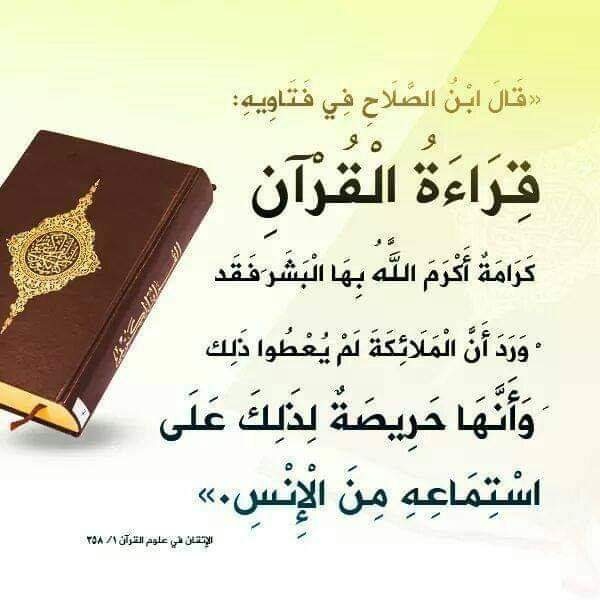 «قَالَ ابْنُ الصَّلَاحِ فِي فَتَاوِيهِ:
قِرَاءَةُ الْقُرْآنِ
كَرَامَةٌ أَكْرَمَ اللَّهُ بِهَا الْبَشَرَ فَقَد
ْ وَرَدَ أَنَّ الْمَلَائِكَةَ لَمْ يُعْطُوا ذَلِك
َ وَأَنَّهَا حَرِيصَةٌ لِذَلِكَ عَلَى
اسْتِمَاعِهِ مِنَ الْإِنْسِ.»
الإتقان في علوم القرآن ١/ ٣٥٨